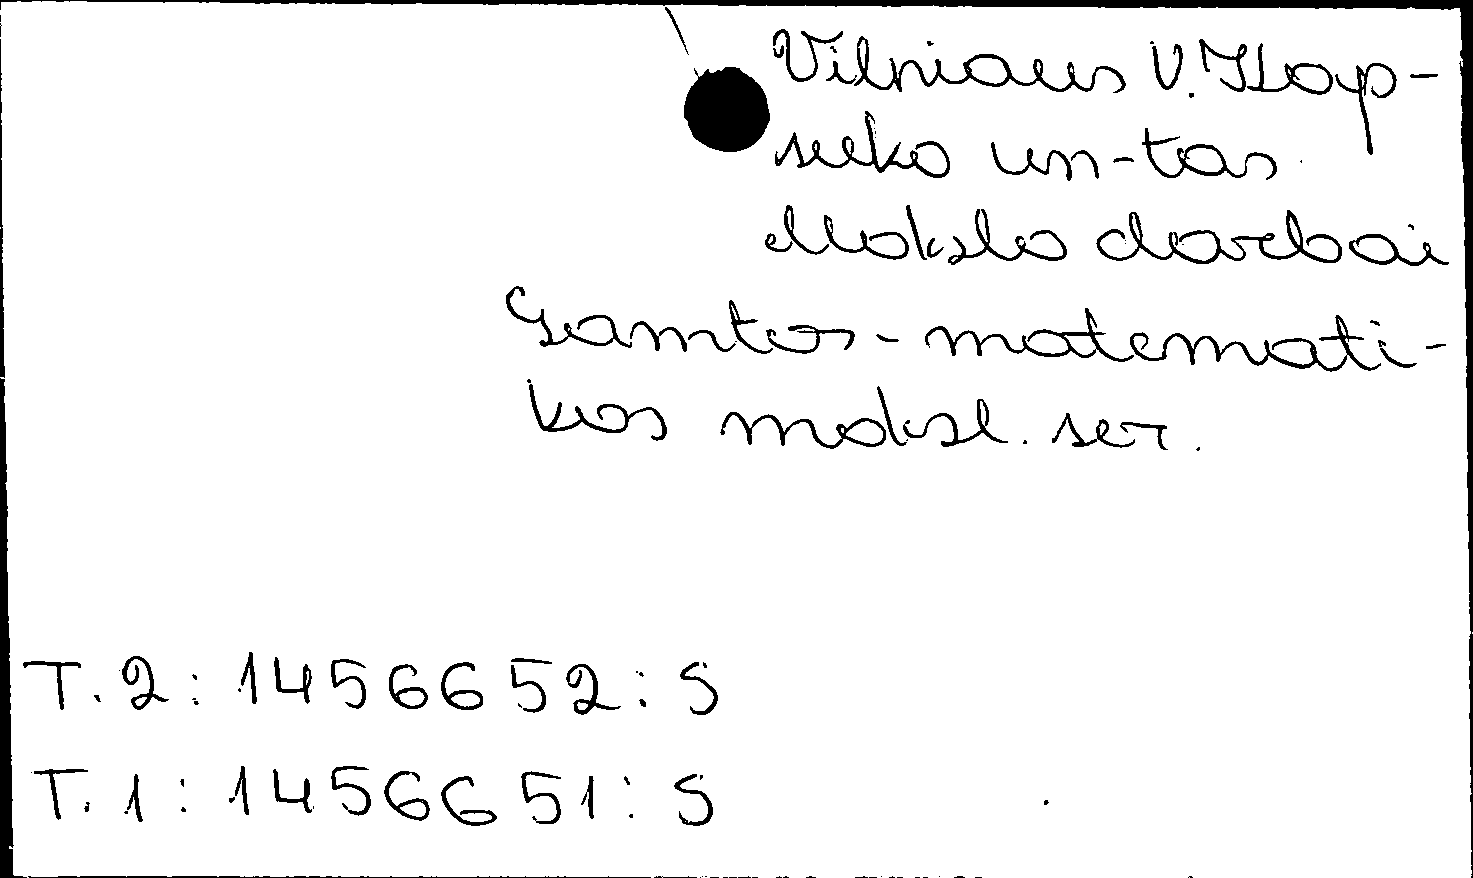 Vilniaus V. Kap-
suko un-tas
Mokslo darbai
Gamtos-matemati-
kos moksl. ser.
T. 2 : 1456652 : S
T. 1 : 1456651 : S